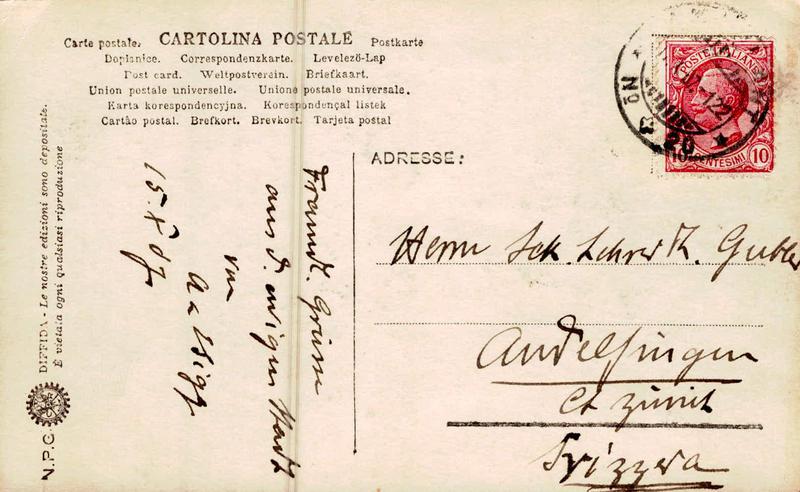 Carte postale. CARTOLINA POSTALE Postkarte
Dopisnice. Correspondenzkarte. Levelező-Lap
Post card. Weltpostverein. Briefkaart.
Union postale universelle. Unione postale universale.
Karta korespondencyjna. Korespondençal listek
Cartão postal. Brefkort. Brevkort. Tarjeta postal
DIFFIDA - Le nostre edizioni sono depositate.
È vietata ogni qualsiasi riproduzione
N.P.G.
Freundl. Grüsse
aus d. ewigen Stadt
von
15. X 07
ADRESSE:
POSTE ITALIANE
10 CENTESIMI 10
Herrn Sek. Lehrer Th. Gubler
Andelfingen
Ct Zürich
Svizzera